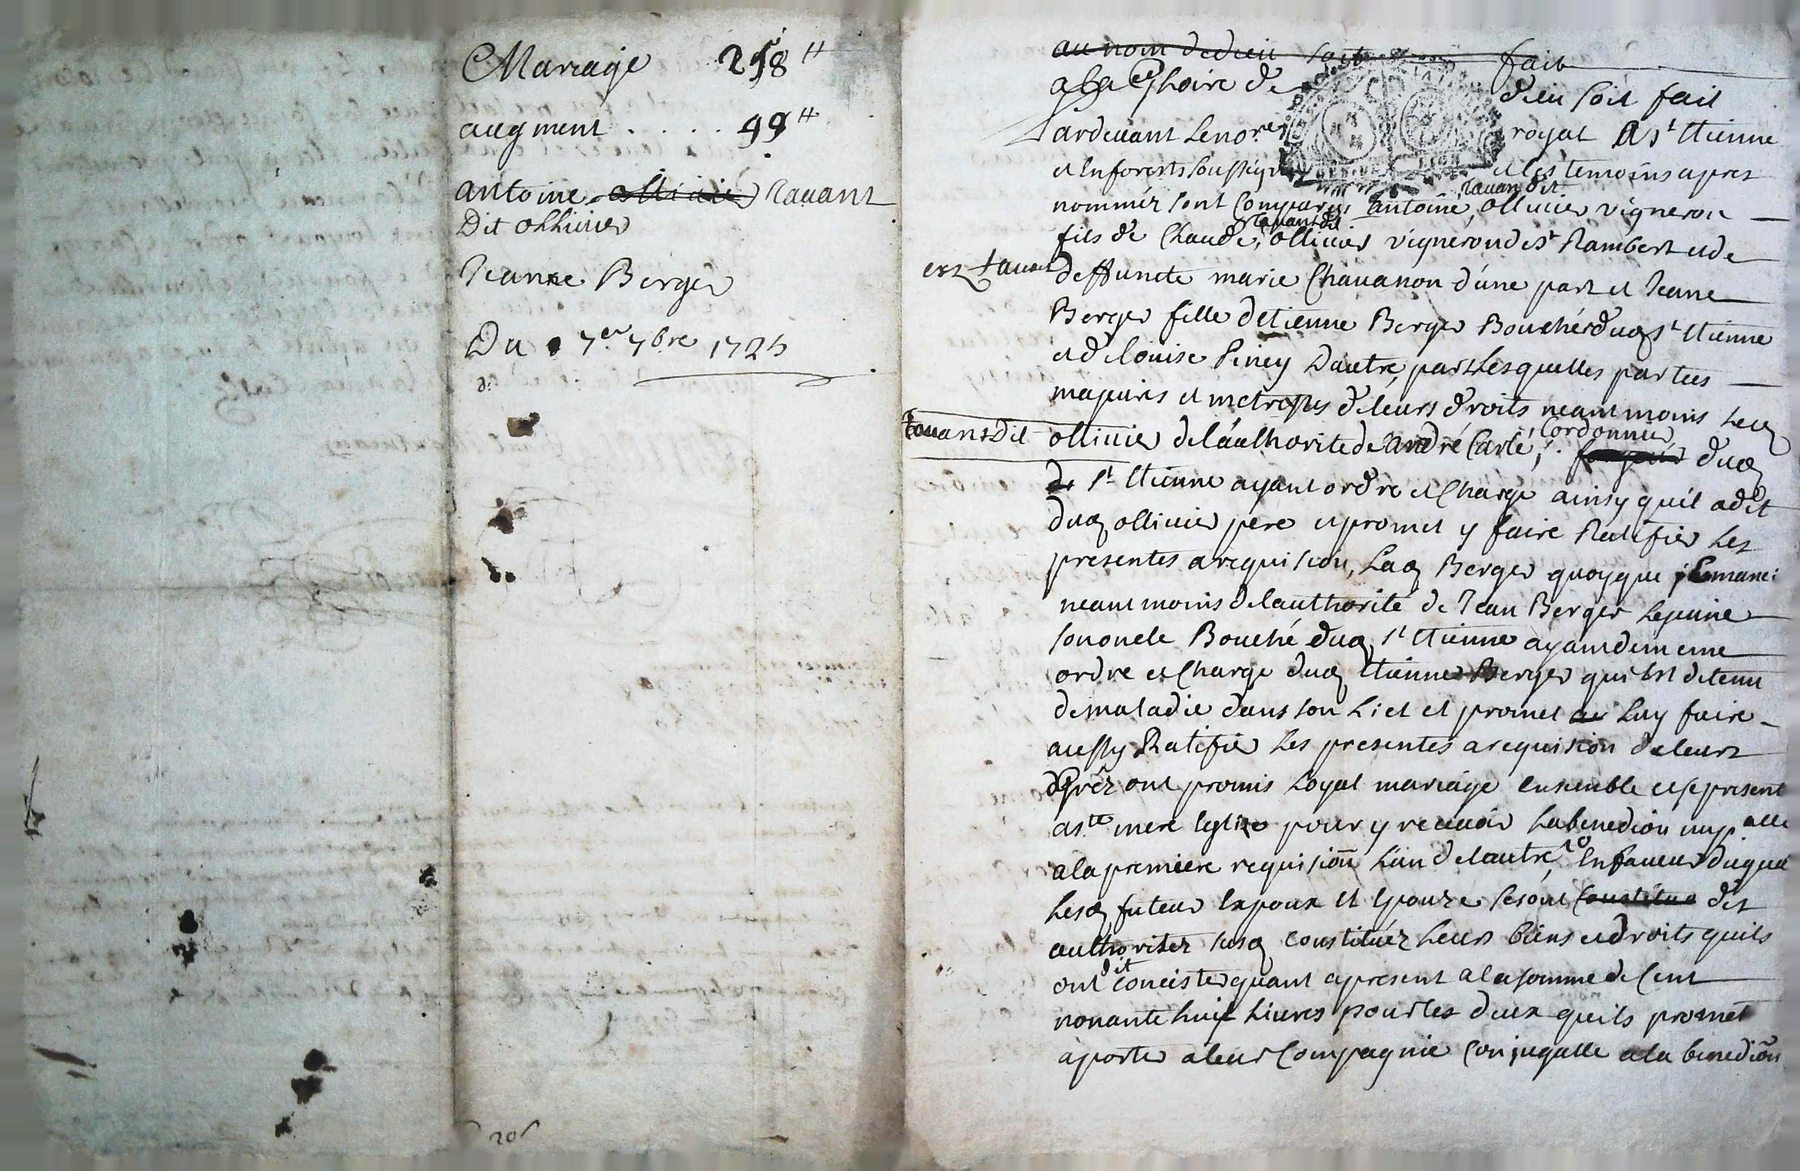 Mariage 258 ₶
augment . . . . . 99 ₶
antoine ollivier Rauant
Dit ollivier
Jeanne Berger
Du 7er 7bre 1725
20ſ
au nom de dieu soit fait
a la Gloire de dieu soit fait
Pardeuant Le no.re royal A St Etienne
et Enforests soussigné et Les temoins apres
nommés sont Comparus antoine Rauan dit ollivier vigneron
fils de Claude Rauant dit ollivier vigneron de St Rambert et de
deffuncte marie Chauanon d'une part et Jeane
Berger fille detienne Berger Bouchér dud St Etienne
et de Louise Piney Dautre part Lesquelles parties
majeurs et metresses de leurs droits neant moins Led
Rauant Dit ollivier de l'authorite de André Carle, Cordonnier dud
de St Etienne ayant ordre et Charge ainsy quil a dit
dud ollivier pere et promet y faire Ratifier Les
presentes a requision, Lad Berger quoyque
neant moins de Lauthorite de Jean Berger Lejeune
son oncle Bouché dud St Etienne ayant de meme
ordre et Charge dud Etienne Berger qui Est detenu
de maladie dans son Lict et promet Luy faire
aussy Ratifier Les presentes a requision de leurs
ont promis Loyal mariage Ensemble et se present
a s.te mere Eglize pour y receuoir La benedion nup.alle
a la premiere requision L'un de Lautre, En faueur duquel
Lesd futeur Expoux et Epouze se sont Constitue des
authoritez susd constituéz Leurs biens et droits quils
ont dit concister quant a present a la somme de Cent
nonante huit Liures pour les deux quils promet
aporter a leur Compagnie Conjugalle a la benedion